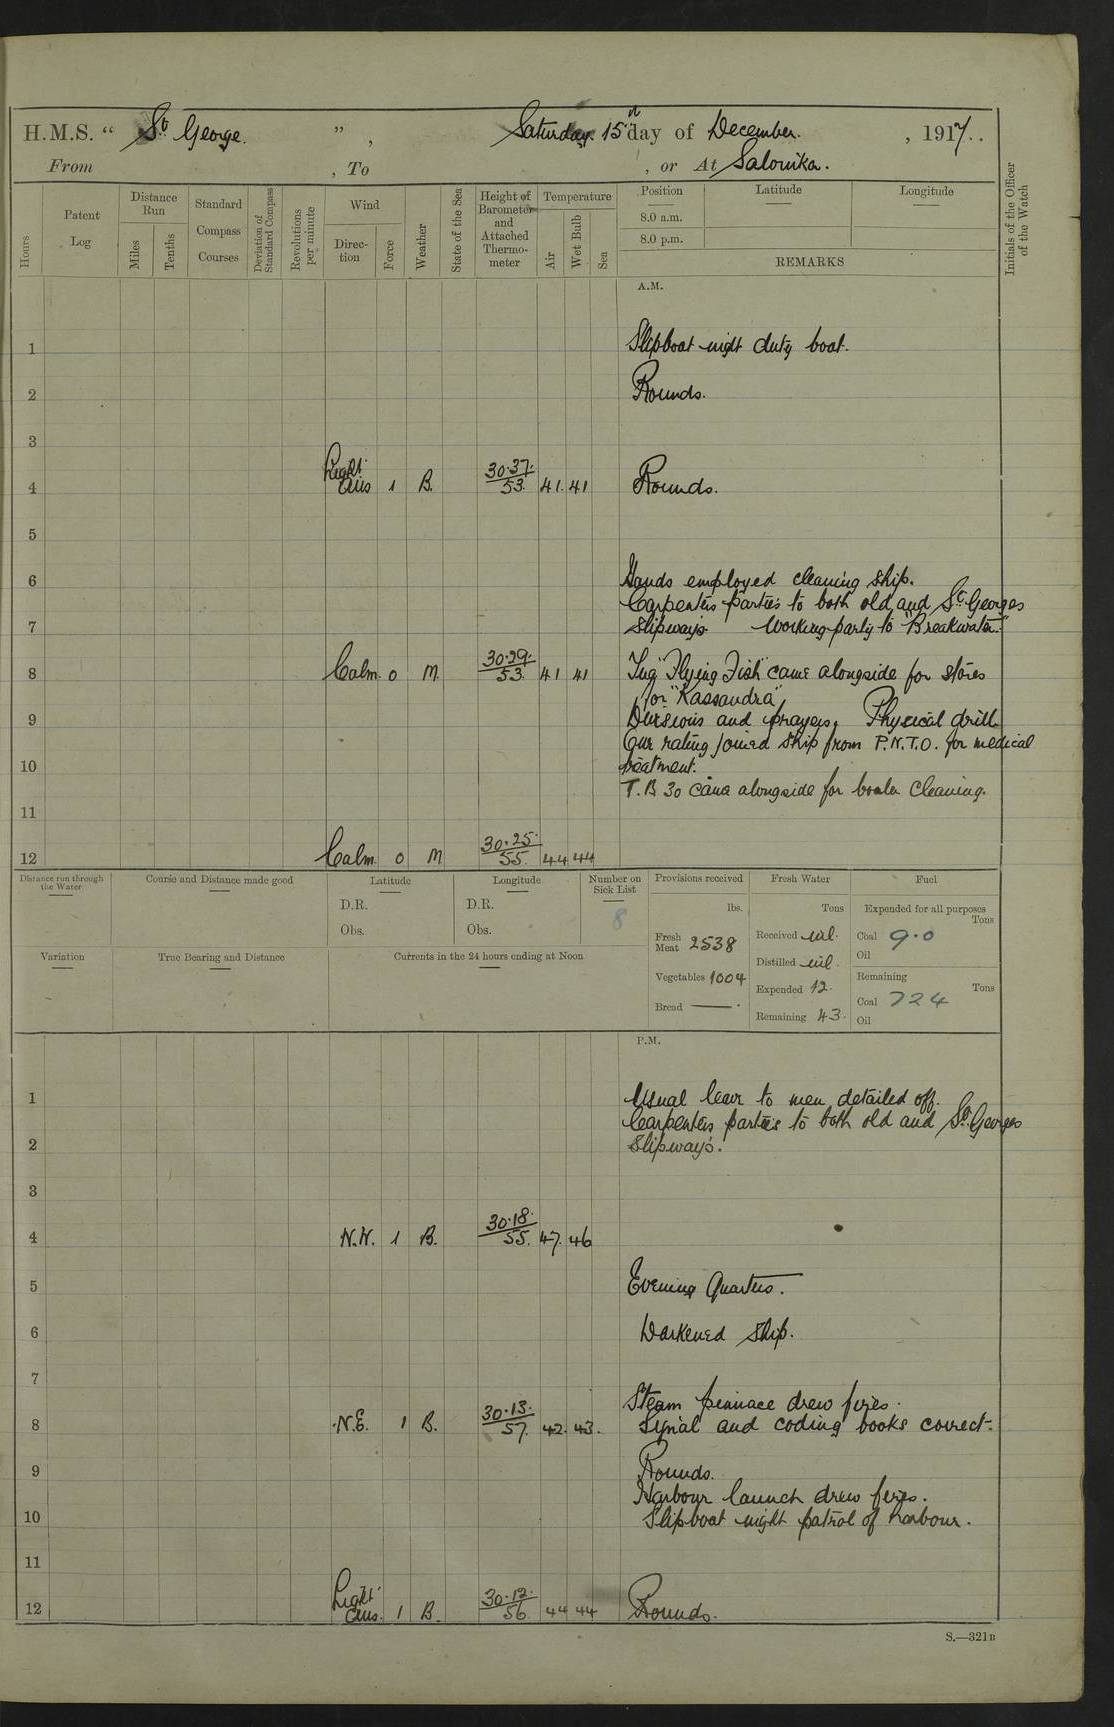 H.M.S. " St. George. ", Saturday. 15th day of December. , 1917.
From , To , or At Salonika.
Hours
Patent Log
Distance Run
Miles
Tenths
Standard Compass Courses
Deviation of Standard Compass
Revolutions per minute
Wind
Direc-tion
Force
Weather
State of the Sea
Height of Barometer and Attached Thermo-meter
Temperature
Air
Wet Bulb
Sea
Position
Latitude
Longitude
8.0 a.m.
8.0 p.m.
REMARKS
Initials of the Officer of the Watch
A.M.
1 Slipboat night duty boat.
2 Rounds.
3
4 Light Airs 1 B. 30.37. 53. 41. 41 Rounds.
5
6 Hands employed cleaning ship.
Carpenters parties to both old and St. Georges
7 Slipways. Working party to "Breakwater."
8 Calm. 0 M. 30.29. 53. 41 41 Tug "Flying Fish" came alongside for stores
for "Kassandra"
9 Divisions and prayers. Physical drill.
One rating joined ship from P.N.T.O. for medical
10 treatment.
T.B 30 came alongside for boiler cleaning.
11
12 Calm. 0 M 30.25. 55. 44 44
Distance run through the Water
Course and Distance made good
Latitude
D.R.
Obs.
Longitude
D.R.
Obs.
Number on Sick List
8
Provisions received
lbs.
Fresh Meat 2538
Vegetables 1004
Bread —— .
Fresh Water
Tons
Received nil.
Distilled nil.
Expended 12.
Remaining 43.
Fuel
Expended for all purposes
Tons
Coal 9.0
Oil
Remaining
Tons
Coal 724
Oil
Variation
True Bearing and Distance
Currents in the 24 hours ending at Noon
P.M.
1 Usual leave to men detailed off.
Carpenters parties to both old and St. Georges
2 Slipways.
3
4 N.W. 1 B. 30.18. 55. 47. 46
5 Evening Quarters.
6 Darkened Ship.
7
Steam pinnace drew fires.
8 N.E. 1 B. 30.13. 57. 42. 43. Signal and coding books correct.
9 Rounds.
Harbour launch drew fires.
10 Slipboat night patrol of harbour.
11
12 Light Airs. 1 B. 30.12. 56 44 44 Rounds.
S.—321B